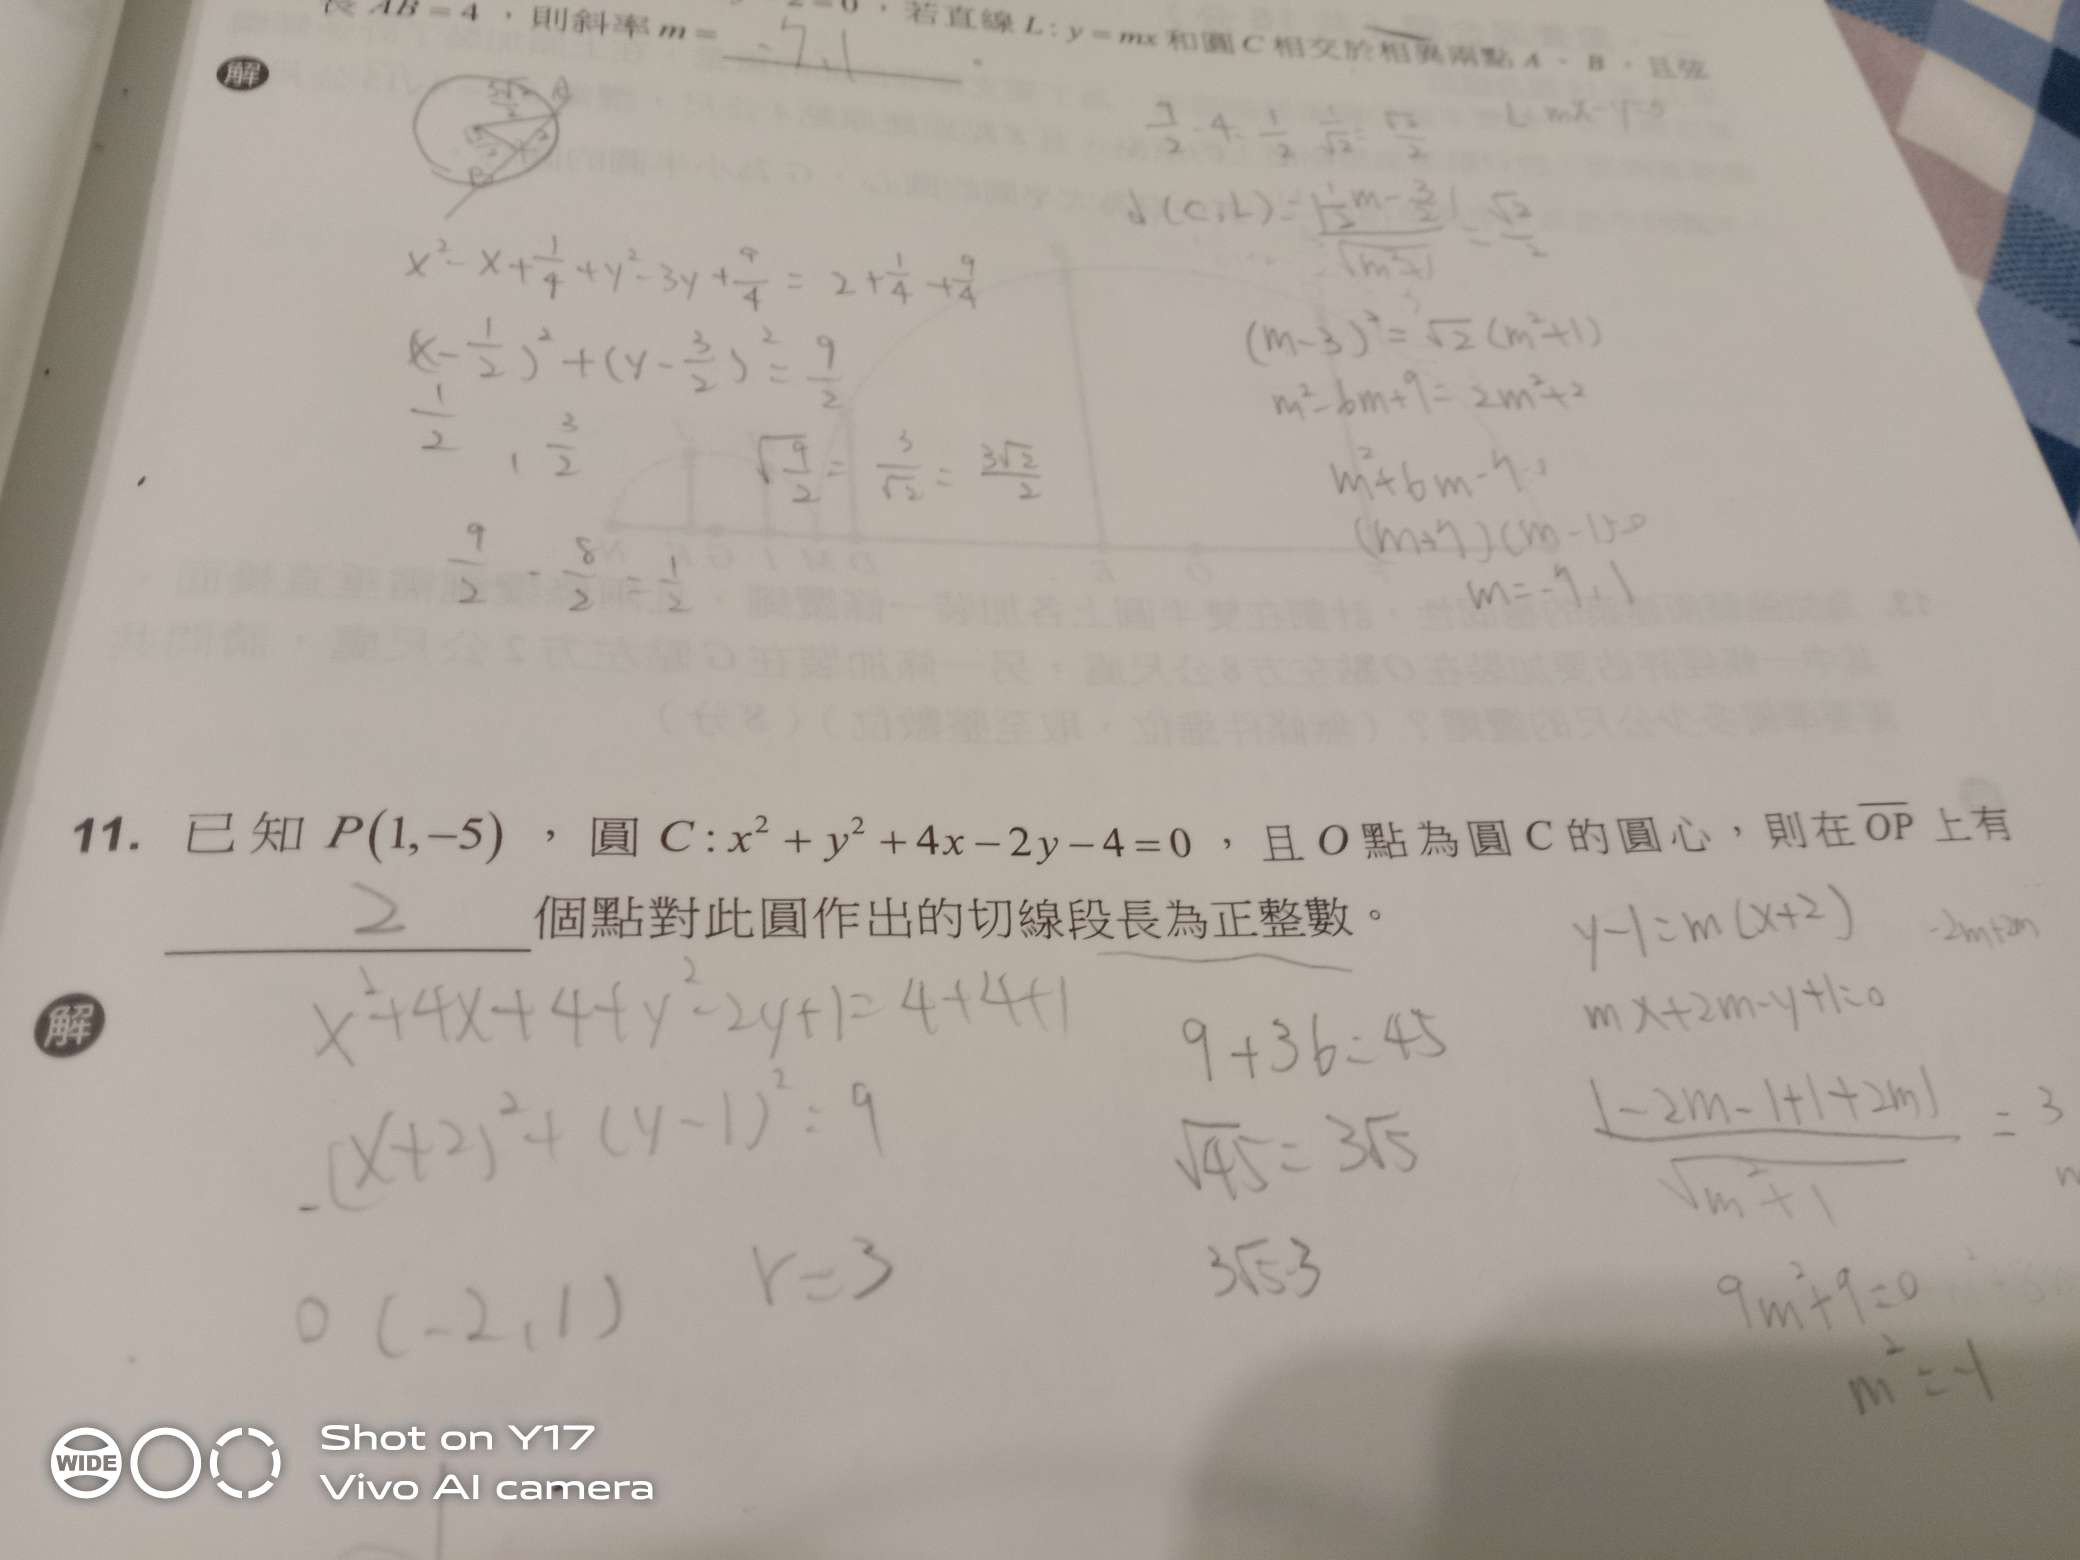 長 AB = 4 ，則斜率 m = -7,1 。
，若直線 L : y = mx 和圓 C 相交於相異兩點 A、B，且弦
解
L: mx-y=0
9/2 - 4 = 1/2 1/√2 = √2/2
d(C,L) = |1/2 m - 3/2| / √(m²+1) = √2/2
x² - x + 1/4 + y² - 3y + 9/4 = 2 + 1/4 + 9/4
(x - 1/2)² + (y - 3/2)² = 9/2
1/2 , 3/2
√(9/2) = 3/√2 = 3√2/2
9/2 - 8/2 = 1/2
(m-3)² = √2 (m²+1)
m²-6m+9 = 2m²+2
m²+6m-7=0
(m+7)(m-1)=0
m=-7,1
11. 已知 P(1,−5) ，圓 C : x² + y² + 4x − 2y − 4 = 0 ，且 O 點為圓 C 的圓心，則在 OP 上有
2 個點對此圓作出的切線段長為正整數。
解
x²+4x+4+y²-2y+1=4+4+1
(x+2)²+(y-1)²=9
O (-2,1) r=3
9+36=45
√45=3√5
3√5-3
y-1=m(x+2)
-2m+2m
mx+2m-y+1=0
|-2m-1+1+2m| / √(m²+1) = 3
9m²+9=0
m²=-1
WIDE
Shot on Y17
Vivo AI camera